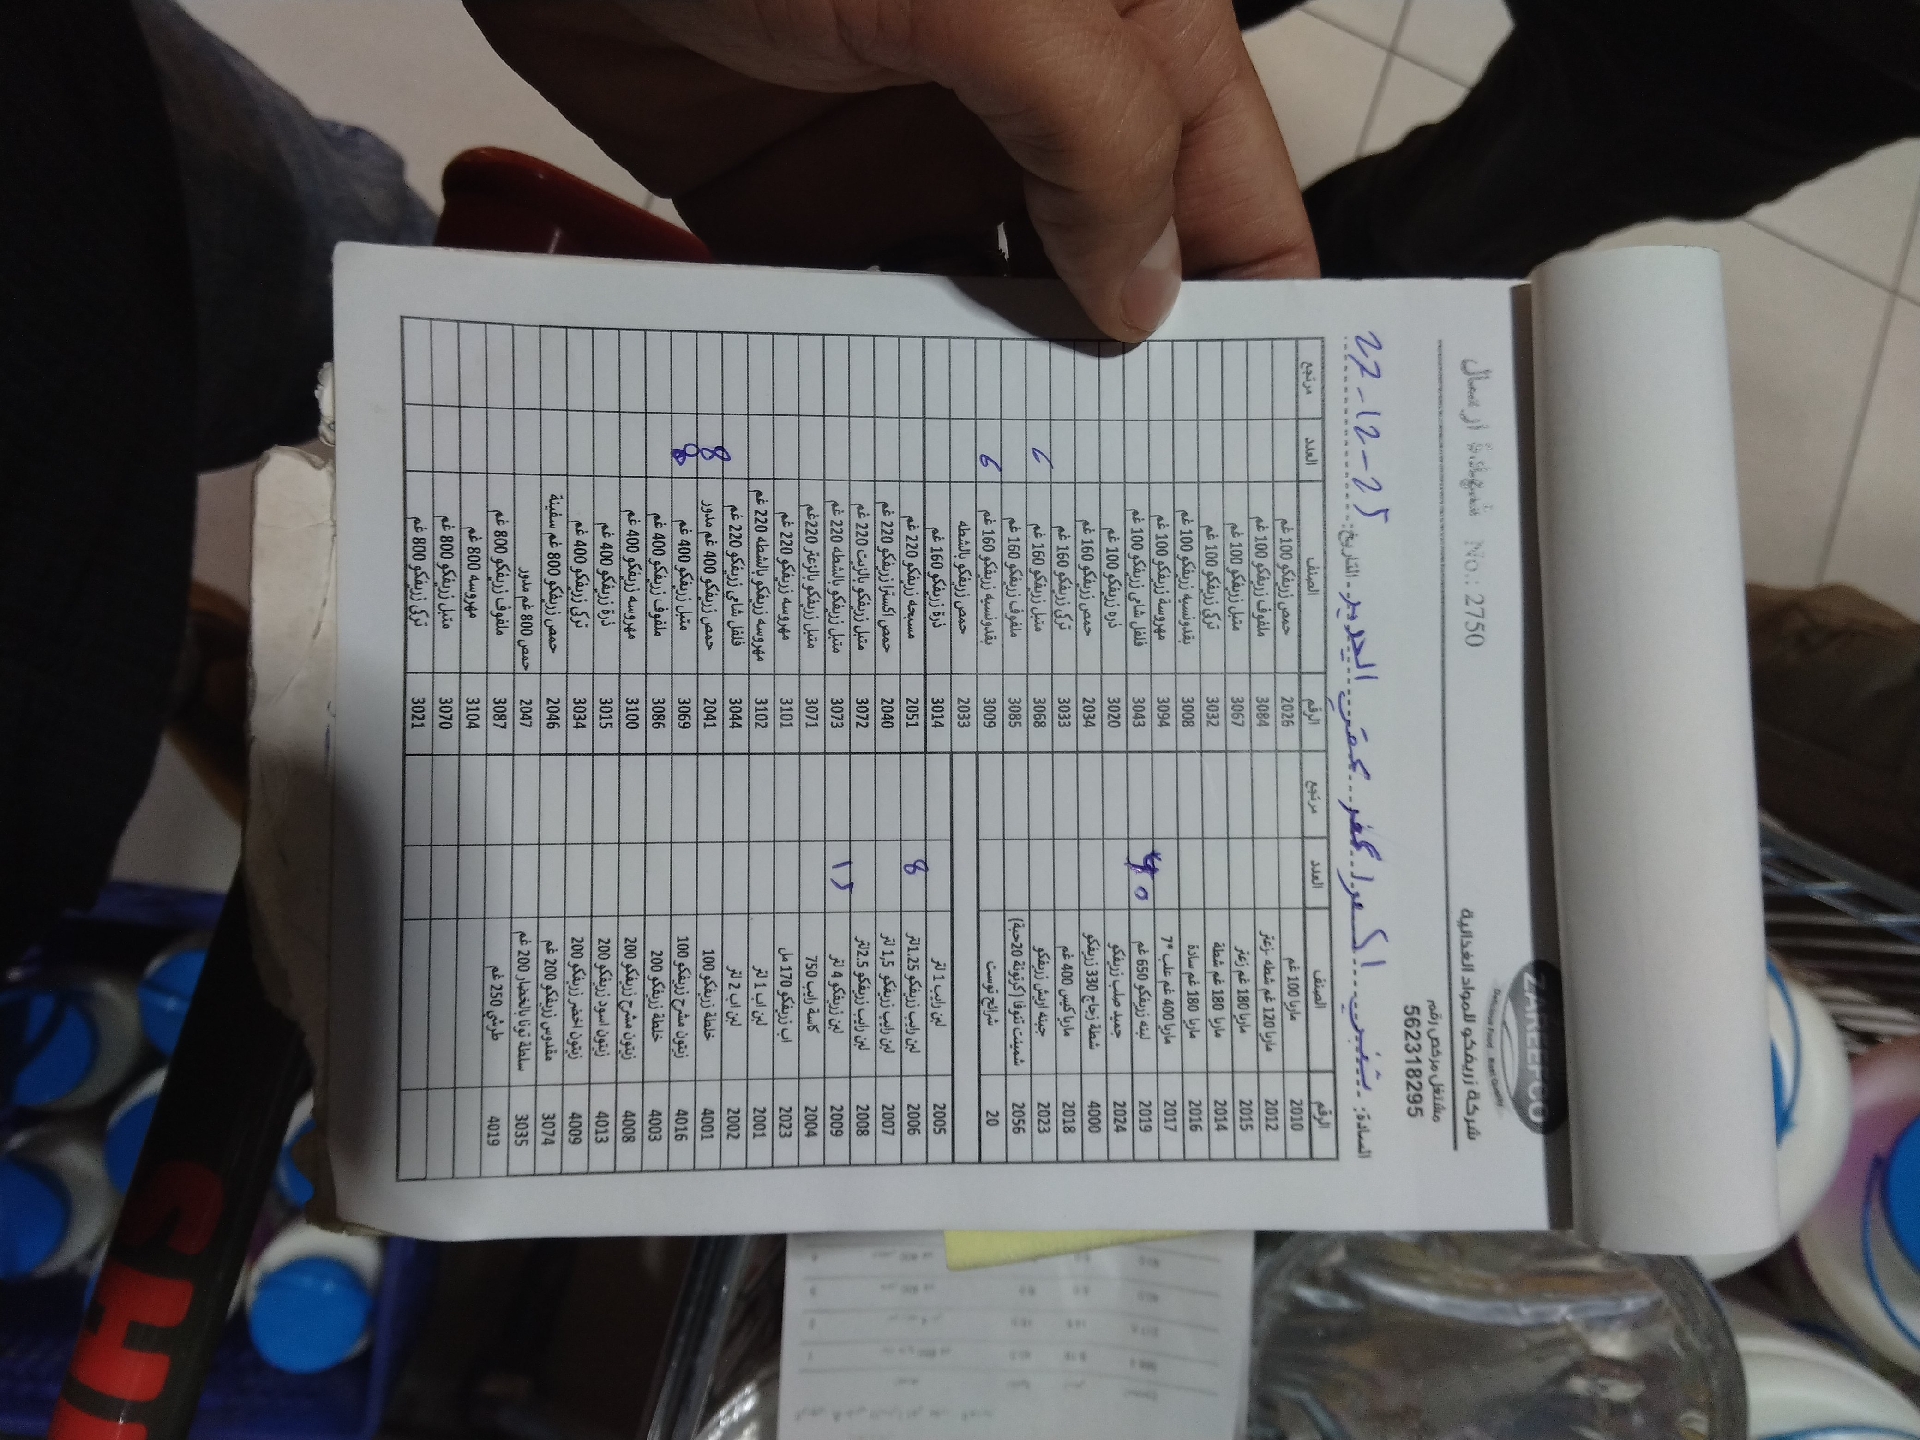 ZAREEFCO
شركة زريفكو للمواد الغذائية
مشتغل مرخص رقم
562318295
شهادة ارسال No.: 2750
السادة: التاريخ: 27-12-25
الرقم الصنف العدد مرتجع الرقم الصنف العدد مرتجع
2010 ماريا 100 غم 2026 حمص زريفكو 100 غم
2012 ماريا 120 غم شطه -زعتر 3084 ملفوف زريفكو 100 غم
2015 ماريا 180 غم زعتر 3067 متبل زريفكو 100 غم
2014 ماريا 180 غم شطة 3032 تركي زريفكو 100 غم
2016 ماريا 180 غم سادة 3008 بقدونسية زريفكو 100 غم
2017 ماريا 400 غم علب *7 3094 مهروسة زريفكو 100 غم
2019 لبنه زريفكو 650 غم 3043 فلفل شامي زريفكو 100 غم
2024 حميد صلب زريفكو 3020 ذره زريفكو 100 غم
4000 شطة زجاج 330 زريفكو 2034 حمص زريفكو 160 غم
2018 ماريا كيس 400 غم 3033 تركي زريفكو 160 غم
2023 جبنه اريش زريفكو 3068 متبل زريفكو 160 غم 6
2056 شمينت تنوفا (كرتونة 20حبة) 3085 ملفوف زريفكو 160 غم
20 شرائح توست 3009 بقدونسيه زريفكو 160 غم 6
2033 حمص زريفكو بالشطه
2005 لبن رايب 1 لتر 3014 ذرة زريفكو 160 غم
2006 لبن رايب زريفكو 1.25لتر 8 2051 مسبحه زريفكو 220 غم
2007 لبن رايب زريفكو 1,5 لتر 2040 حمص اكسترا زريفكو 220 غم
2008 لبن رايب زريفكو 2.5لتر 3072 متبل زريفكو بالزيت 220 غم
2009 لبن زريفكو 4 لتر 3073 متبل زريفكو بالشطه 220 غم
2004 كاسة رايب 750 3071 متبل زريفكو بالزعتر 220 غم
2023 اب زريفكو 170 مل 3101 مهروسه زريفكو 220 غم
2001 لبن اب 1 لتر 3102 مهروسه زريفكو بالشطه 220 غم
2002 لبن اب 2 لتر 3044 فلفل شامي زريفكو 220 غم
4001 خلطة زريفكو 100 2041 حمص زريفكو 400 غم مدور 8
4016 زيتون مشرح زريفكو 100 3069 متبل زريفكو 400 غم 8
4003 خلطة زريفكو 200 3086 ملفوف زريفكو 400 غم
4008 زيتون مشرح زريفكو 200 3100 مهروسه زريفكو 400 غم
4013 زيتون اسود زريفكو 200 3015 ذرة زريفكو 400 غم
4009 زيتون اخضر زريفكو 200 3034 تركي زريفكو 400 غم
3074 مقدوس زريفكو 200 غم 2046 حمص زريفكو 800 غم سفينة
3035 سلطة تونا بالخضار 200 غم 2047 حمص 800 غم مدور
4019 طرشي 250 غم 3087 ملفوف زريفكو 800 غم
3104 مهروسه 800 غم
3070 متبل زريفكو 800 غم
3021 تركي زريفكو 800 غم